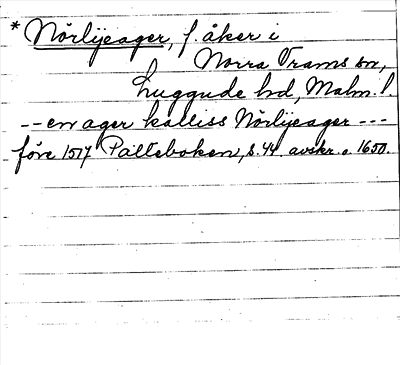 * Nörlijeager, f. åker i
Norra Vrams sn,
Luggude hd, Malm. l.
-- en ager kalliss Nörlijeager ---
före 1517 Pálteboken, s. 44 avskr. o. 1650.